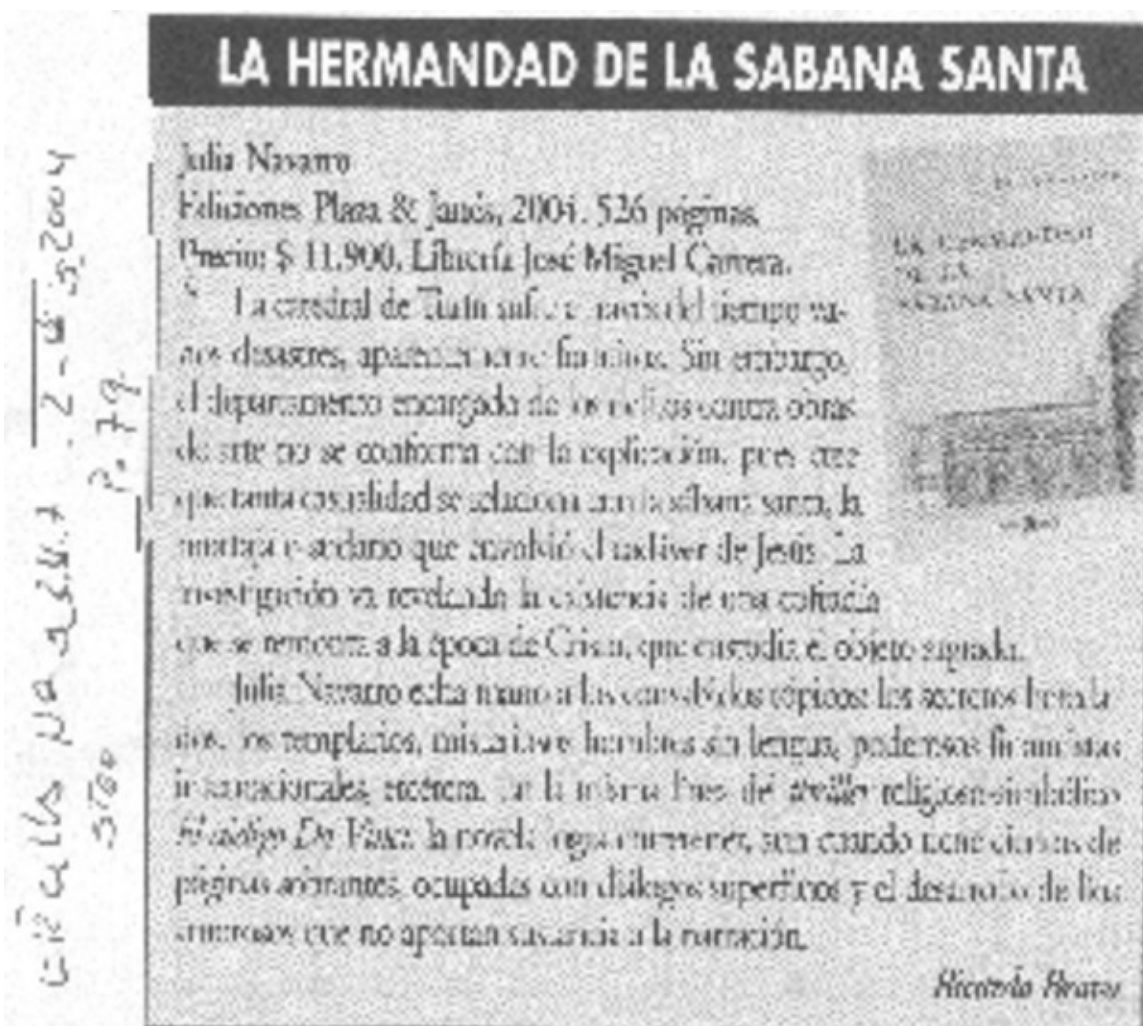 LA HERMANDAD DE LA SABANA SANTA
Julia Navarro
Ediciones Plaza & Janés, 2004. 526 páginas.
Precio: $ 11.900. Librería José Miguel Carrera.
La catedral de Turín sufre a través del tiempo va-
rios desastres, aparentemente fortuitos. Sin embargo,
el departamento encargado de los delitos contra obras
de arte no se conforma con la explicación, pues cree
que tanta casualidad se relaciona con la sábana santa, la
mortaja o sudario que envolvió el cadáver de Jesús. La
investigación va revelando la existencia de una cofradía
que se remonta a la época de Cristo, que custodia el objeto sagrado.
Julia Navarro echa mano a los consabidos tópicos: los secretos
los templarios, misteriosos hombres sin lengua, poderosos financistas
internacionales, etcétera. En la misma línea del thriller religioso-simbólico
El código Da Vinci, la novela logra entretener, aun cuando tiene decenas de
páginas sobrantes, ocupadas con diálogos superfluos y el desarrollo de
que no aportan sustancia a la narración.
Ricardo
LA HERMANDAD
DE LA
SABANA SANTA
2004
P. 79.
STGO